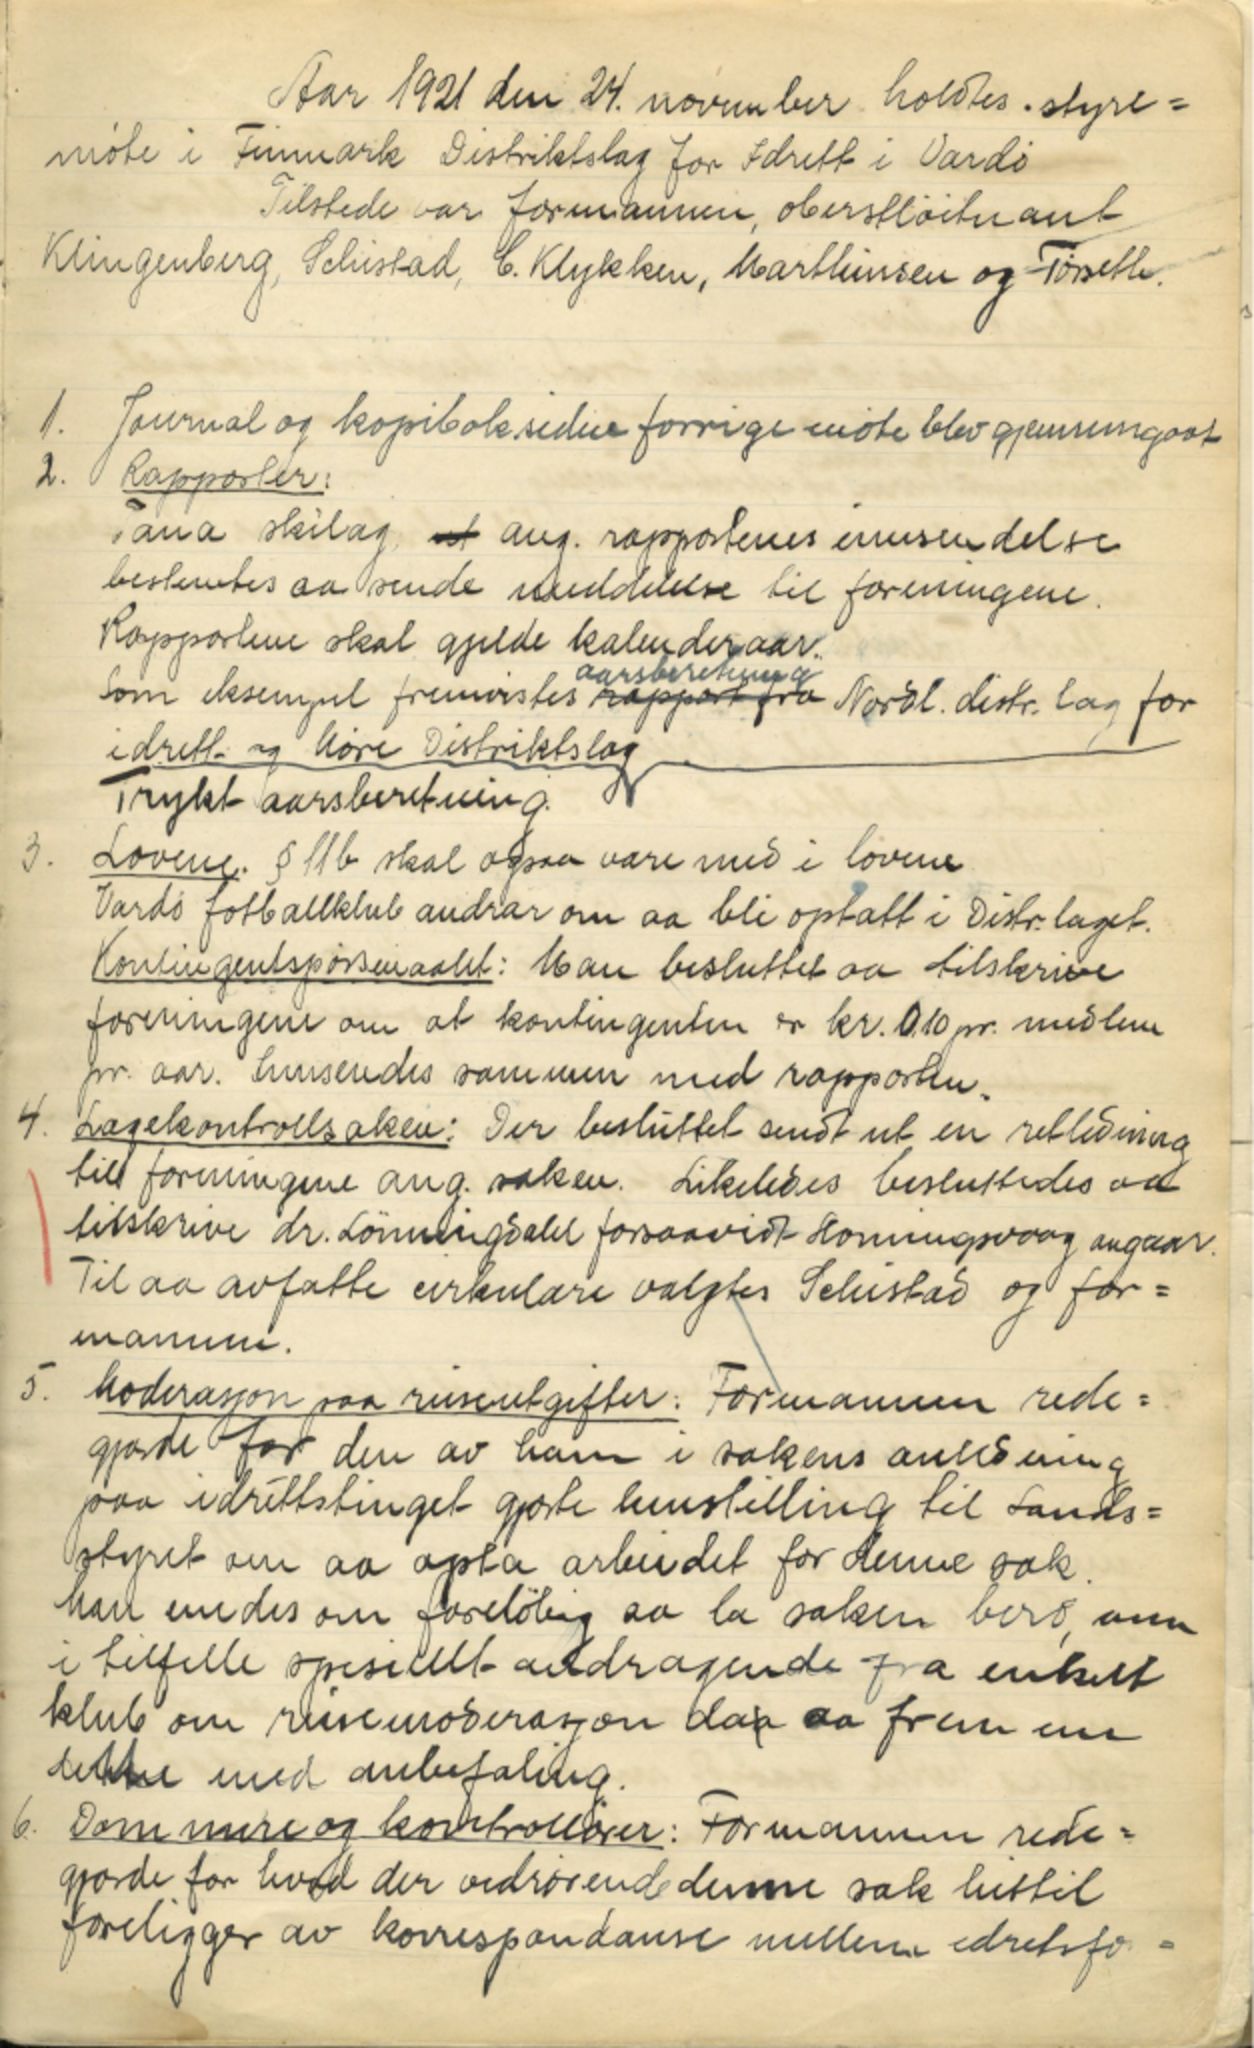 Aar 1921 den 24. november holdtes styre=
möte i Finmark Distriktslag for Idrett i Vardö
Tilstede var formannen, oberstlöitnant
Klingenberg, Schistad, C. Klykken, Marthinsen og Törseth.
1. Journal og kopibok siden forrige möte blev gjennemgaat
2. Rapporter:
Tana skilag ang. rapportenes innsendelse
bestemtes aa sende meddelelse til foreningene.
Rapportene skal gjelde kalenderaar.
aarsberetning
Som eksempel fremvistes rapport fra Nordl. distr. lag for
idrett og Möre Distriktslag
Trykt aarsberetning.
3. Lovene. § 11b skal ogsaa være med i lovene
Vardö fotballklub andrar om aa bli optatt i Distr. laget.
Kontingentspörsmaalet: Man besluttet aa tilskrive
foreningene om at kontingenten er kr. 0.10 pr. medlem
pr. aar. Innsendes sammen med rapporten.
4. Lægekontrollsaken: Der besluttet sendt ut en retledning
til foreningene ang. saken. Likeledes besluttedes aa
tilskrive dr. Lönningdalel forsaavidt Honningsvaag angaar.
Til aa avfatte cirkulære valgtes Schistad og for=
mannen.
5. Moderasjon paa reiseutgifter: Formannen rede=
gjorde for den av ham i sakens anledning
paa idrettstinget gjorte henstilling til Lands=
styret om aa opta arbeidet for denne sak.
Man enedes om foreløbig aa la saken bero, men
i tilfelle spesielt andragende fra enkelt
klub om reisemoderasjon da aa fremme
dette med anbefaling.
6. Dommere og kontrollører: Formannen rede=
gjorde for hvad der vedrörende denne sak hittil
foreligger av korrespondanse mellem idretsfo=